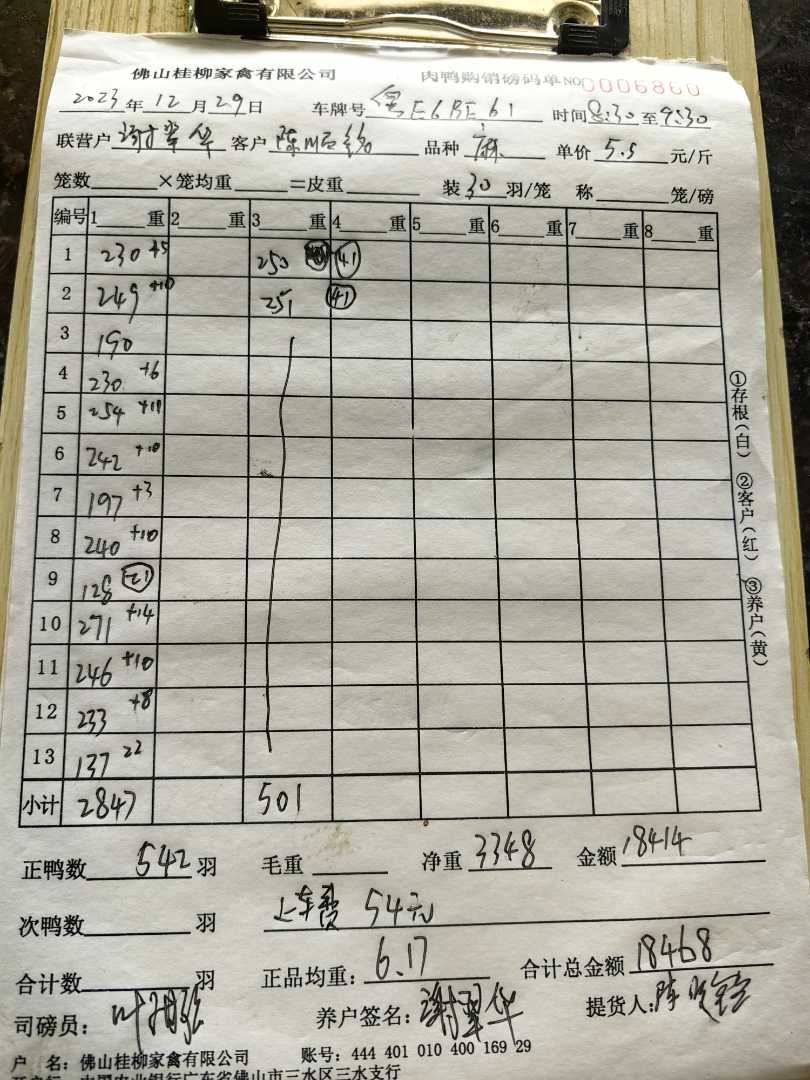 佛山桂柳家禽有限公司 肉鸭购销磅码单 NO 0006860
2023年12月29日 车牌号 时间8:30至9:30
联营户 谢翠华 客户 陈 品种 麻 单价 5.5 元/斤
笼数 ×笼均重 =皮重 装30羽/笼 称 笼/磅
编号 1 重 2 重 3 重 4 重 5 重 6 重 7 重 8 重
1 230 +5 250 41
2 249 +10 251 41
3 190
4 230 +6
5 254 +11
6 242 +10
7 197 +3
8 240 +10
9 128 21
10 271 +14
11 246 +10
12 233 +8
13 137 22
小计 2847 501
正鸭数 542 羽 毛重 净重 3348 金额 18414
次鸭数 羽 上车费 54元
合计数 羽 正品均重: 6.17 合计总金额 18468
司磅员: 叶 养户签名: 谢翠华 提货人: 陈
户 名: 佛山桂柳家禽有限公司 账号: 444 401 010 400 169 29
开户行: 中国农业银行广东省佛山市三水区三水支行
①存根(白) ②客户(红) ③养户(黄)